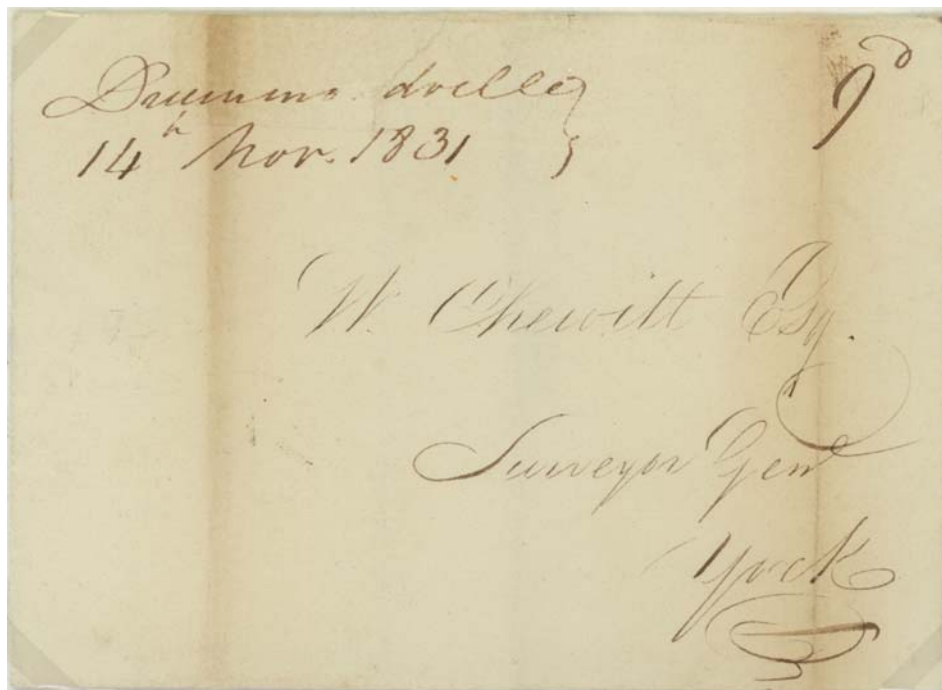 Drummondville
14th Nov. 1831
9d
W. Chewitt Esq.
Surveyor Genl
York